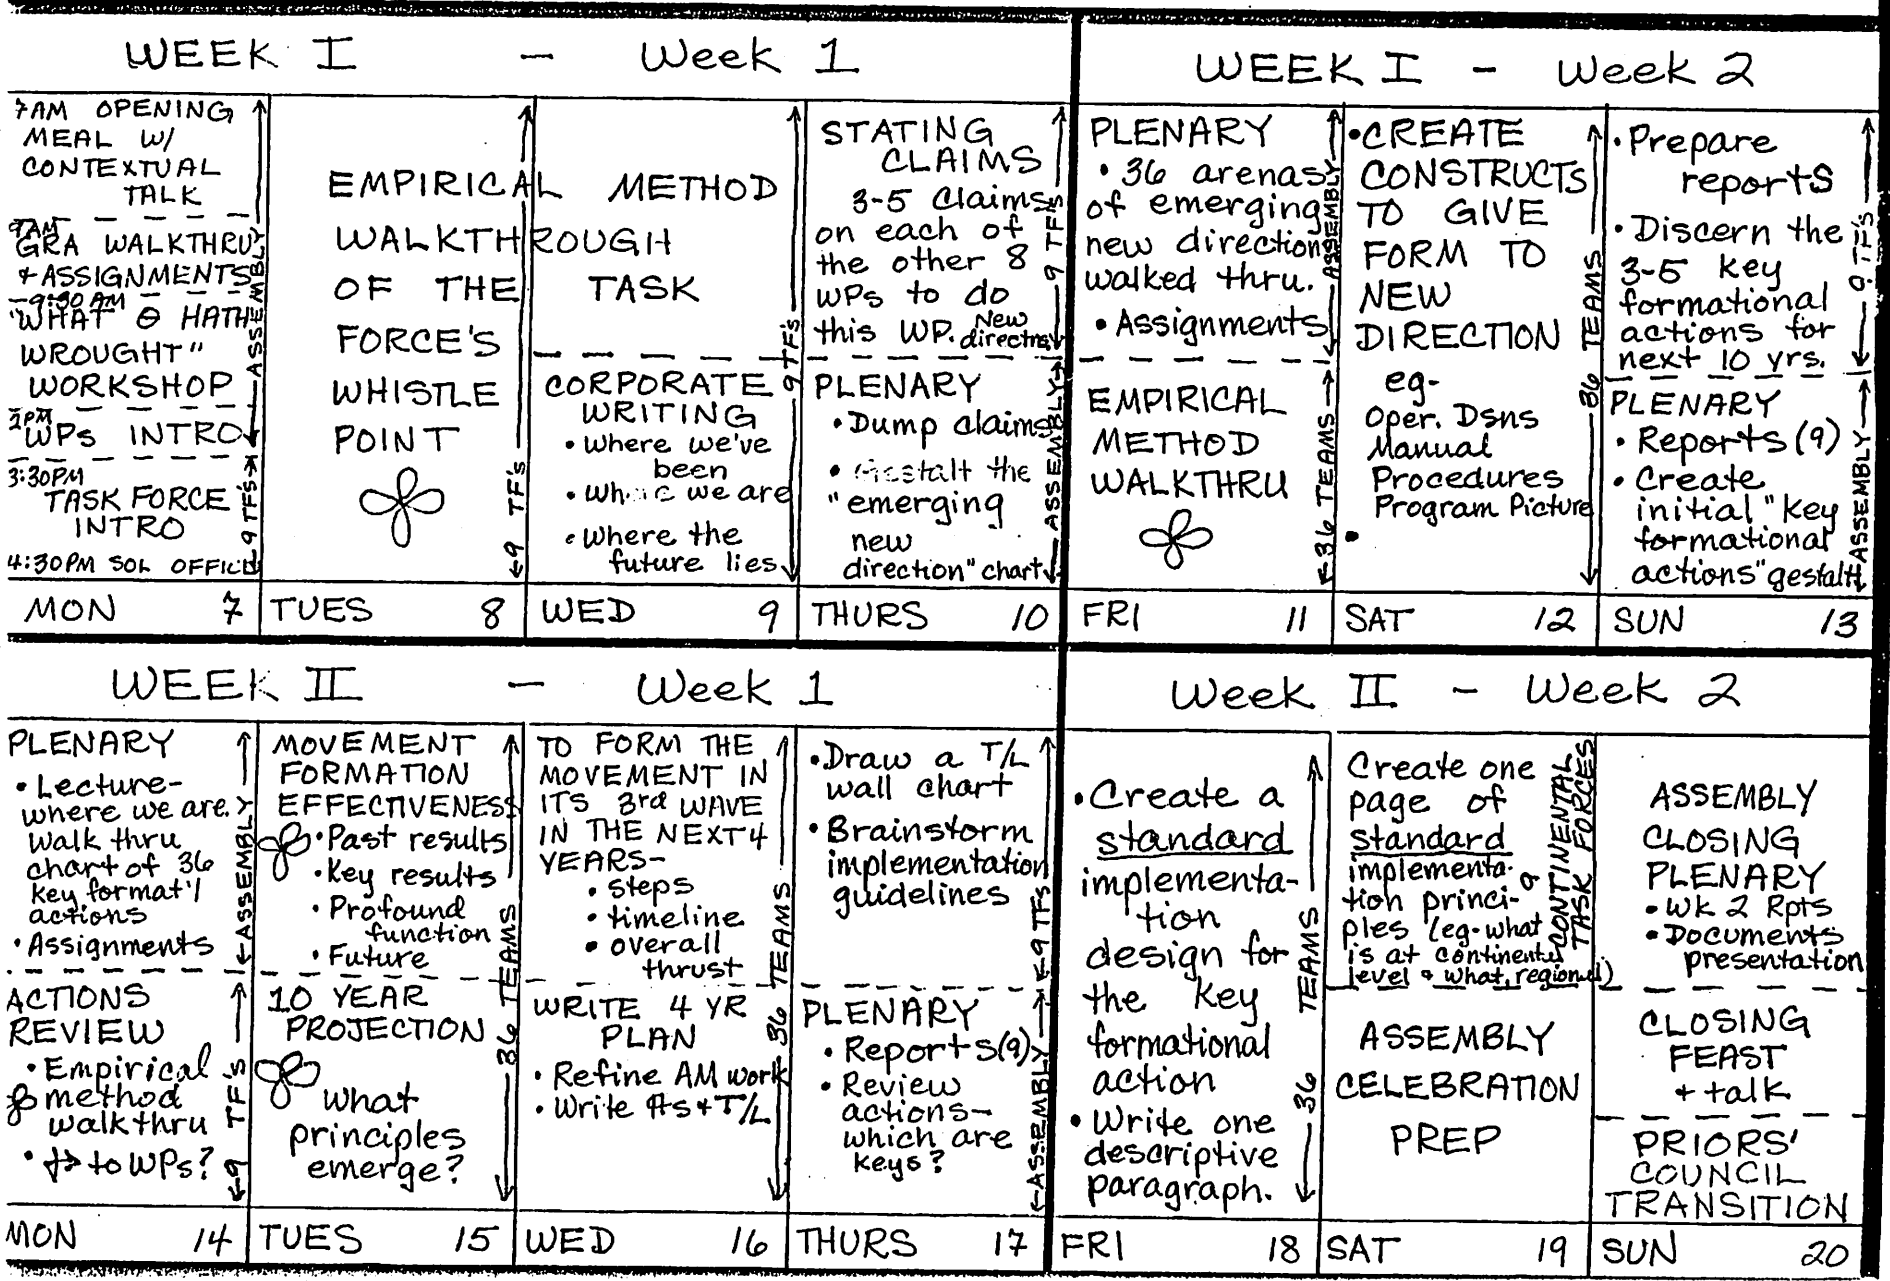 WEEK I - Week 1
7AM OPENING
MEAL W/
CONTEXTUAL
TALK
9AM
GRA WALKTHRU
+ ASSIGNMENTS
9:30 AM
"WHAT Θ HATH
WROUGHT"
WORKSHOP
2PM
WPs INTRO
3:30PM
TASK FORCE
INTRO
4:30PM SOL OFFICE
ASSEMBLY
9 TF's
MON 7
EMPIRICAL METHOD
WALKTHROUGH
OF THE TASK
FORCE'S
WHISTLE
POINT
9 TF's
TUES 8
CORPORATE
WRITING
• Where we've
been
• Where we are
• Where the
future lies
9 TF's
WED 9
STATING
CLAIMS
3-5 Claims
on each of
the other 8
WPs to do
this WP. New
directns
9 TF's
PLENARY
• Dump claims
• Gestalt the
"emerging
new
direction" chart
ASSEMBLY
THURS 10
WEEK I - Week 2
PLENARY
• 36 arenas
of emerging
new direction
walked thru.
• Assignments
ASSEMBLY
EMPIRICAL
METHOD
WALKTHRU
36 TEAMS
FRI 11
• CREATE
CONSTRUCTS
TO GIVE
FORM TO
NEW
DIRECTION
eg-
Oper. Dsns
Manual
Procedures
Program Picture
•
36 TEAMS
SAT 12
• Prepare
reports
• Discern the
3-5 key
formational
actions for
next 10 yrs.
9 TF's
PLENARY
• Reports (9)
• Create
initial "key
formational
actions" gestalt
ASSEMBLY
SUN 13
WEEK II - Week 1
PLENARY
• Lecture-
where we are.
Walk thru
chart of 36
key format'l
actions
• Assignments
ASSEMBLY
ACTIONS
REVIEW
• Empirical
method
walkthru
• to WPs?
9 TF's
MON 14
MOVEMENT
FORMATION
EFFECTIVENESS
• Past results
• Key results
• Profound
function
• Future
10 YEAR
PROJECTION
What
principles
emerge?
36 TEAMS
TUES 15
TO FORM THE
MOVEMENT IN
ITS 3rd WAVE
IN THE NEXT 4
YEARS-
• steps
• timeline
• overall
thrust
WRITE 4 YR
PLAN
• Refine AM work
• Write ¶s + T/L
36 TEAMS
WED 16
• Draw a T/L
wall chart
• Brainstorm
implementation
guidelines
9 TFs
PLENARY
• Reports (9)
• Review
actions-
which are
keys?
ASSEMBLY
THURS 17
Week II - Week 2
• Create a
standard
implementa-
tion
design for
the key
formational
action
• Write one
descriptive
paragraph.
36 TEAMS
FRI 18
Create one
page of
standard
implementa-
tion princi-
ples (eg-what
is at continental
level & what, regional)
CONTINENTAL
TASK FORCES
ASSEMBLY
CELEBRATION
PREP
SAT 19
ASSEMBLY
CLOSING
PLENARY
• Wk 2 Rpts
• Documents
presentation
CLOSING
FEAST
+ talk
PRIORS'
COUNCIL
TRANSITION
SUN 20